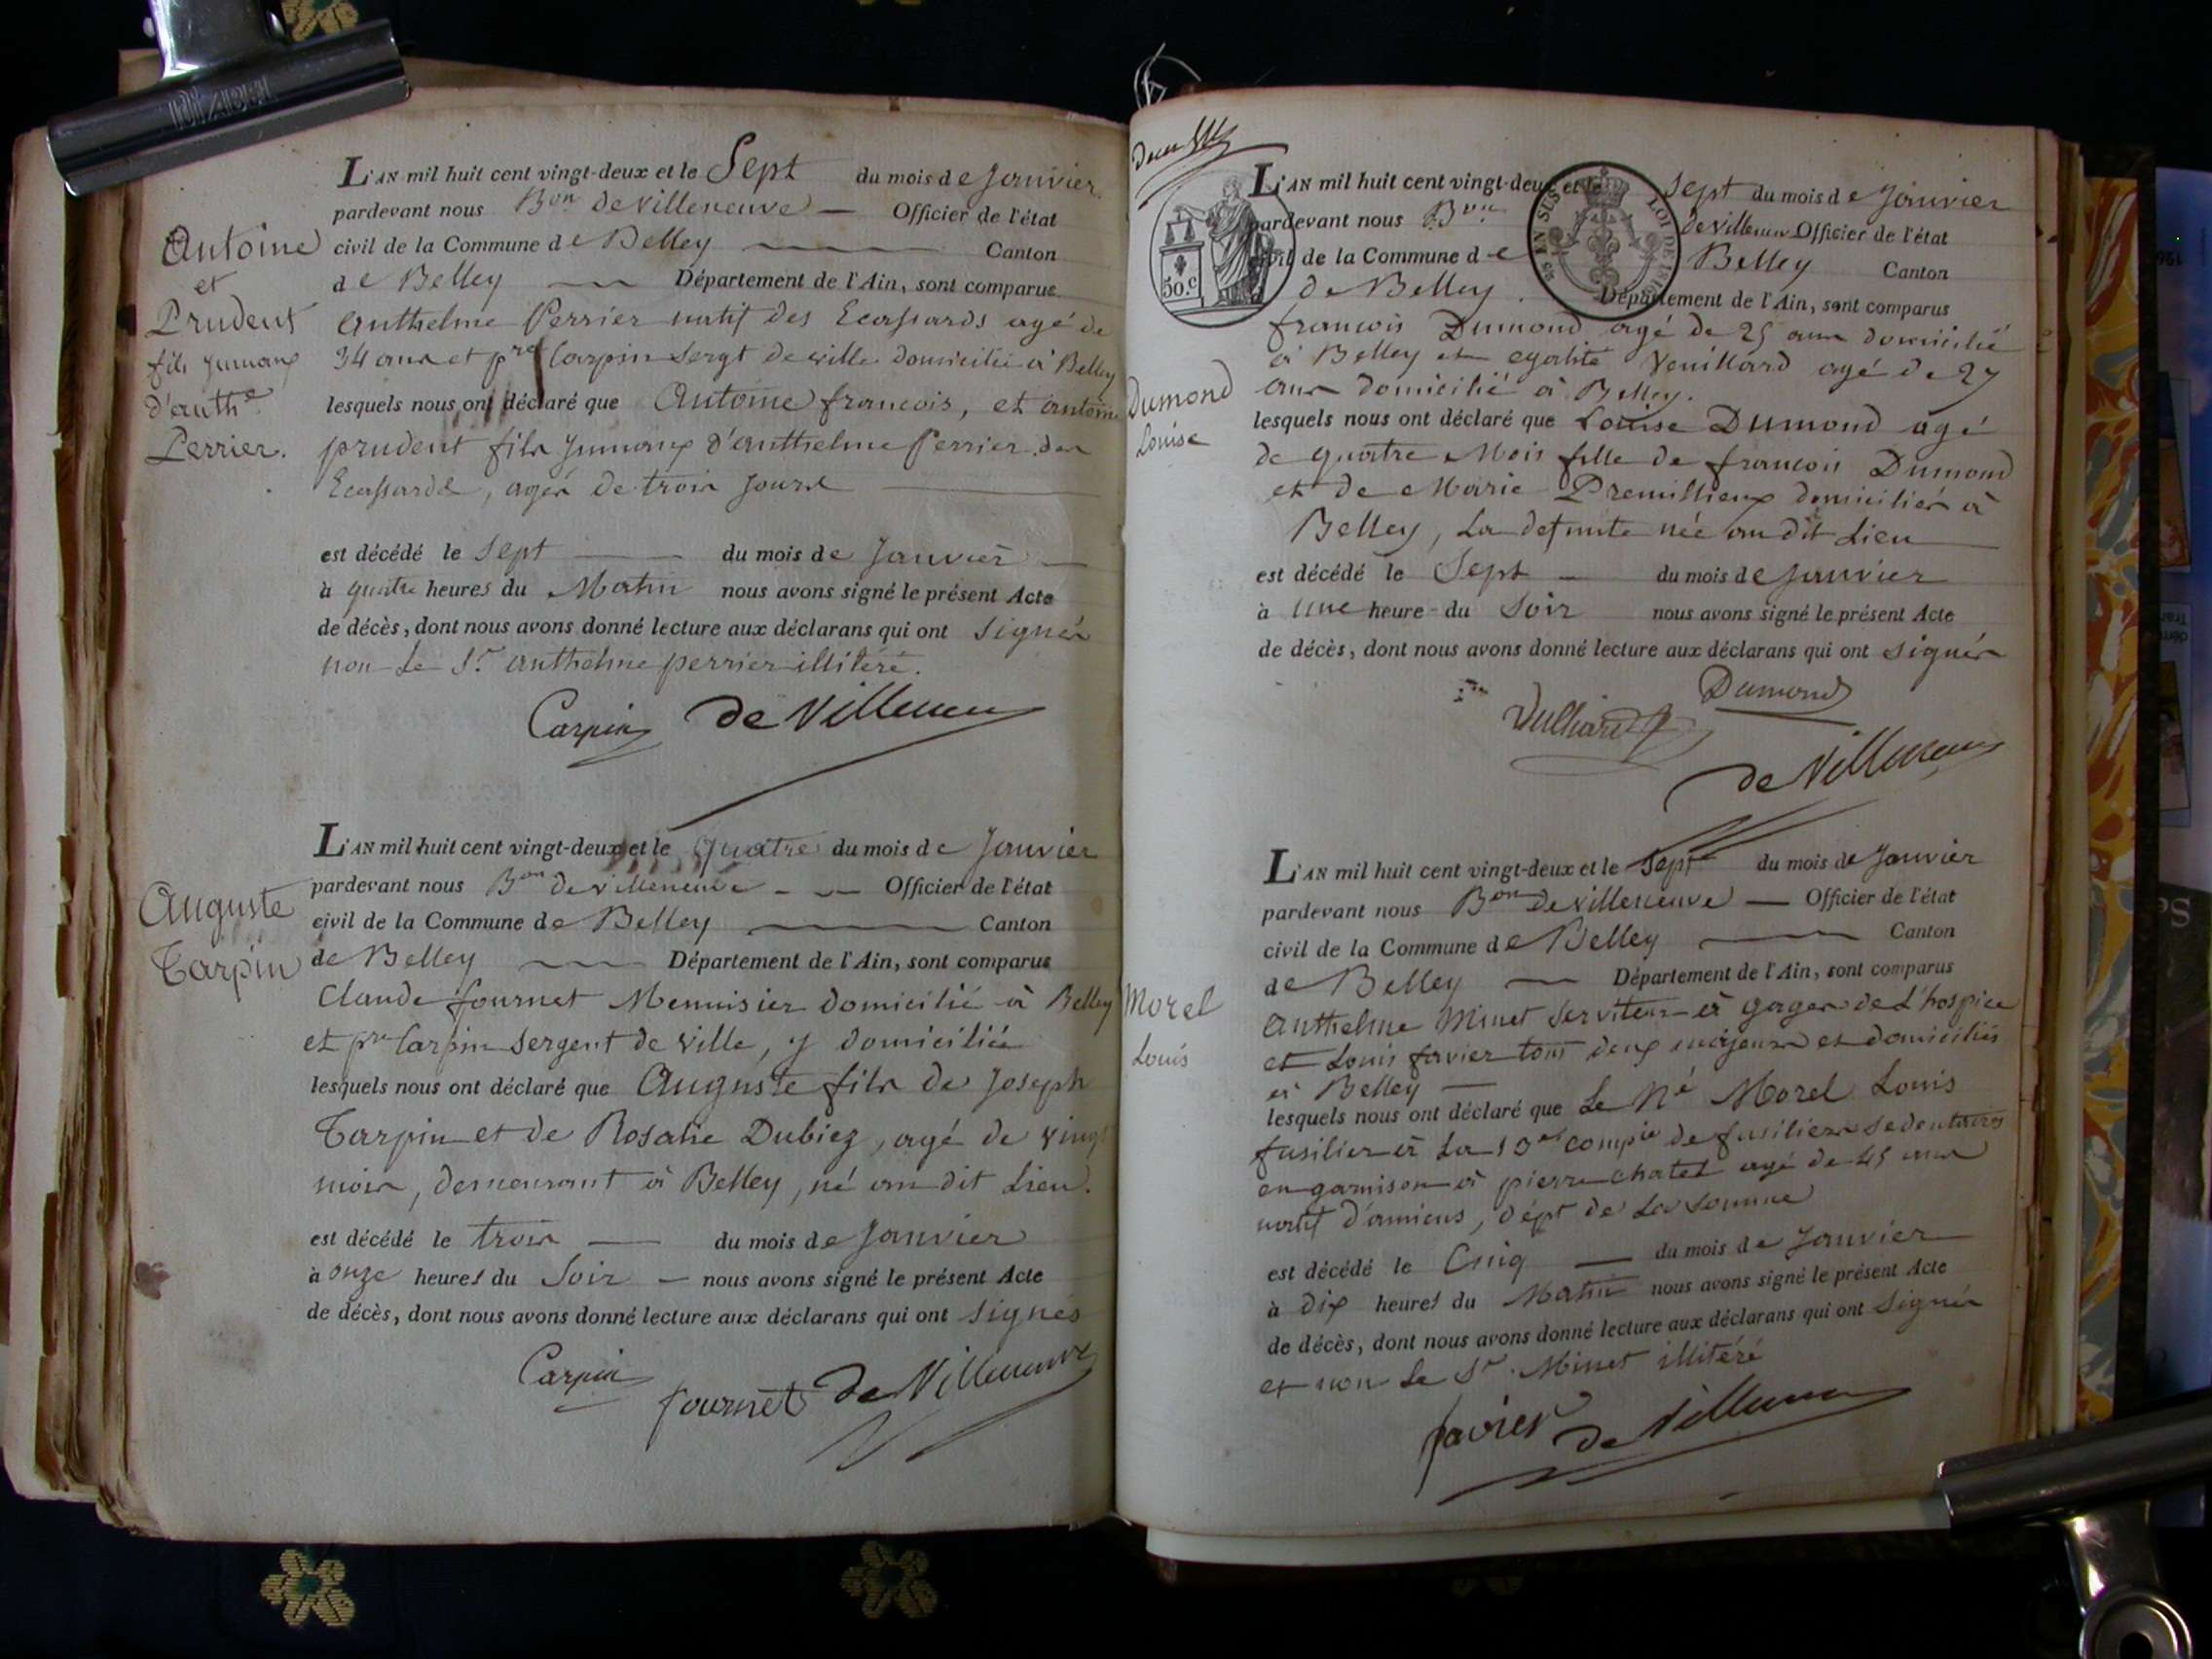 L'AN mil huit cent vingt-deux et le Sept du mois de Janvier
pardevant nous Bon de villeneuve — Officier de l'état
civil de la Commune de Belley Canton
de Belley Département de l'Ain, sont comparus
Anthelme Perrier natif des Ecassards agé de
34 ans et pre Carpin sergt de ville domicilié à Belley
lesquels nous ont déclaré que Antoine francois, et antoine
prudent fils jumaux d'anthelme Perrier des
Ecassards, agés de trois jours
est décédé le Sept du mois de Janvier
à quatre heures du Matin nous avons signé le présent Acte
de décès, dont nous avons donné lecture aux déclarans qui ont signés
non le Sr anthelme perrier illitéré.
Carpin de Villeneuve
Antoine
et
Prudent
fils jumaux
d'anthe
Perrier.
L'AN mil huit cent vingt-deux et le quatre du mois de Janvier
pardevant nous Bon de villeneuve Officier de l'état
civil de la Commune de Belley Canton
de Belley Département de l'Ain, sont comparus
Claude fournet Menuisier domicilié à Belley
et pre Carpin sergent de ville, y domiciliés
lesquels nous ont déclaré que Auguste fils de Joseph
Tarpin et de Rosalie Dubiez, agé de vingt
mois, demeurant à Belley, né au dit Lieu.
est décédé le trois du mois de Janvier
à onze heures du Soir — nous avons signé le présent Acte
de décès, dont nous avons donné lecture aux déclarans qui ont signés
Carpin fournet de Villeneuve
Auguste
Tarpin
L'AN mil huit cent vingt-deux et le sept du mois de Janvier
pardevant nous Bon de villeneuve Officier de l'état
civil de la Commune de Belley Canton
de Belley Département de l'Ain, sont comparus
francois Dumond agé de 25 ans domicilié
à Belley et egalité Veuillard agé de 27
ans domicilié à Belley.
lesquels nous ont déclaré que Louise Dumond agé
de quatre Mois fille de francois Dumond
et de Marie Premillieux domiciliés à
Belley, La defunte née au dit Lieu
est décédé le Sept du mois de Janvier
à une heure du Soir nous avons signé le présent Acte
de décès, dont nous avons donné lecture aux déclarans qui ont signés
Dumond
Vulliard
de Villeneuve
50.c
EN SUS
LOI DE
Dumond
Louise
L'AN mil huit cent vingt-deux et le Sept du mois de Janvier
pardevant nous Bon de villeneuve — Officier de l'état
civil de la Commune de Belley Canton
de Belley Département de l'Ain, sont comparus
Anthelme Minet serviteur à gages de L'hospice
et Louis favier tous deux majeurs et domiciliés
à Belley
lesquels nous ont déclaré que Le Né Morel Louis
fusilier à La 10e compie de fusiliers sedentaires
en garnison à pierre chatel agé de 45 ans
natif d'amiens, dépt de La Somme
est décédé le Cinq du mois de Janvier
à dix heures du Matin nous avons signé le présent Acte
de décès, dont nous avons donné lecture aux déclarans qui ont signés
et non le Sr. Minet illitéré
favier de Villeneuve
Morel
Louis